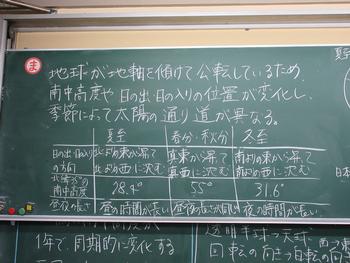 ま
地球が地軸を傾けて公転しているため、
南中高度や日の出・日の入りの位置が変化し、
季節によって太陽の通り道が異なる。
夏至 春分・秋分 冬至
日の出・日の入りの方向 北よりの東から昇って北よりの西に沈む 真東から昇って真西に沈む 南よりの東から昇って南よりの西に沈む
南中高度 55° 31.6°
昼夜の長さ 昼の時間が長い 昼夜の長さが同じ 夜の時間が長い
1年で周期的に変化する
透明半球→天球
回転の向き→自転の向き